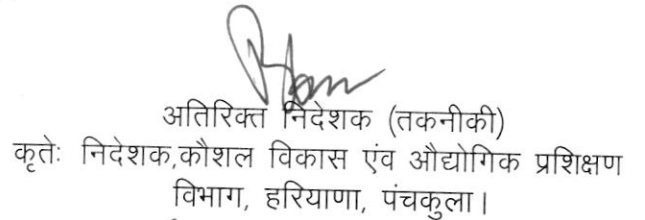 अतिरिक्त निदेशक (तकनीकी)
कृतेः निदेशक,कौशल विकास एंव औद्योगिक प्रशिक्षण
विभाग, हरियाणा, पंचकुला।